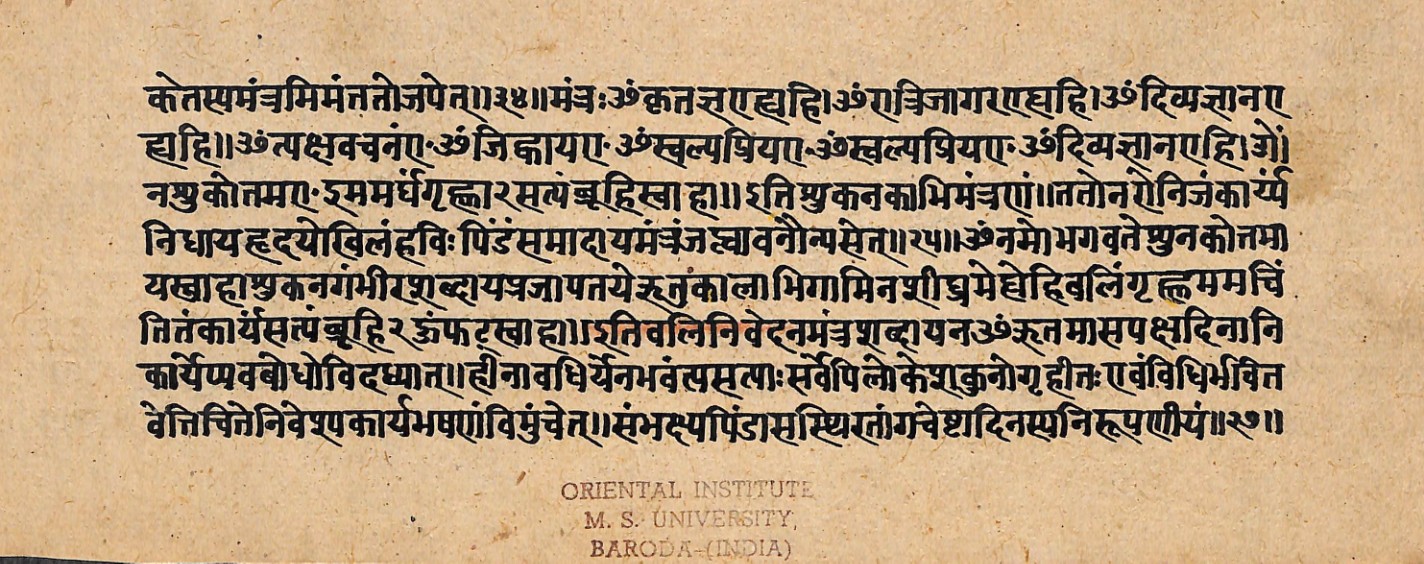 केतस्यमंत्रमिमंततोजपेत्॥२४॥मंत्रः ॐकृतज्ञएह्येहि।ॐरात्रिजागरएह्येहि।ॐदिव्यज्ञानए
ह्येहि॥ॐत्यक्षवचनंए॰ॐजिह्वायए॰ॐस्वल्पप्रियए॰ॐस्वल्पप्रियए॰ॐदिव्यज्ञानएहि।
नशुकोतमए॰इममर्घंगृह्ण२सत्यंब्रूहिस्वाहा॥इतिशुकनकाभिमंत्रणं॥ततोनरोनिजंकार्य्यं
निधायहृदयोखिलंहविःपिंडंसमादायमंत्रंजप्त्वावनौन्यसेत्॥२५॥ॐनमोभगवतेशुनकोत्तमा
यस्वाहाशुकनगंभीरशब्दायप्रजापतयेऋतुंकालाभिगामिनशीघ्रमेह्येहिबलिंगृह्णममचिं
तितंकार्यंसत्यंब्रूहि२ॐफट्स्वाहा॥इतिबलिनिवेदनमंत्रशब्दायनॐऋतमासपक्षदिनानि
कार्येप्यवबोधोविदध्यात्॥हीनावधिर्येनभवंत्यसत्याःसर्वेपिलोकेशकुनोगृहीतःएवंविधिर्भषित
वेत्तिचित्तेनिवेश्यकार्यभषणंविमुंचेत्॥संभक्ष्यपिंडासस्थिरतांगचेष्टादिनस्यनिरूपणीयं॥२७॥
ORIENTAL INSTITUTE
M. S. UNIVERSITY,
BARODA-(INDIA)